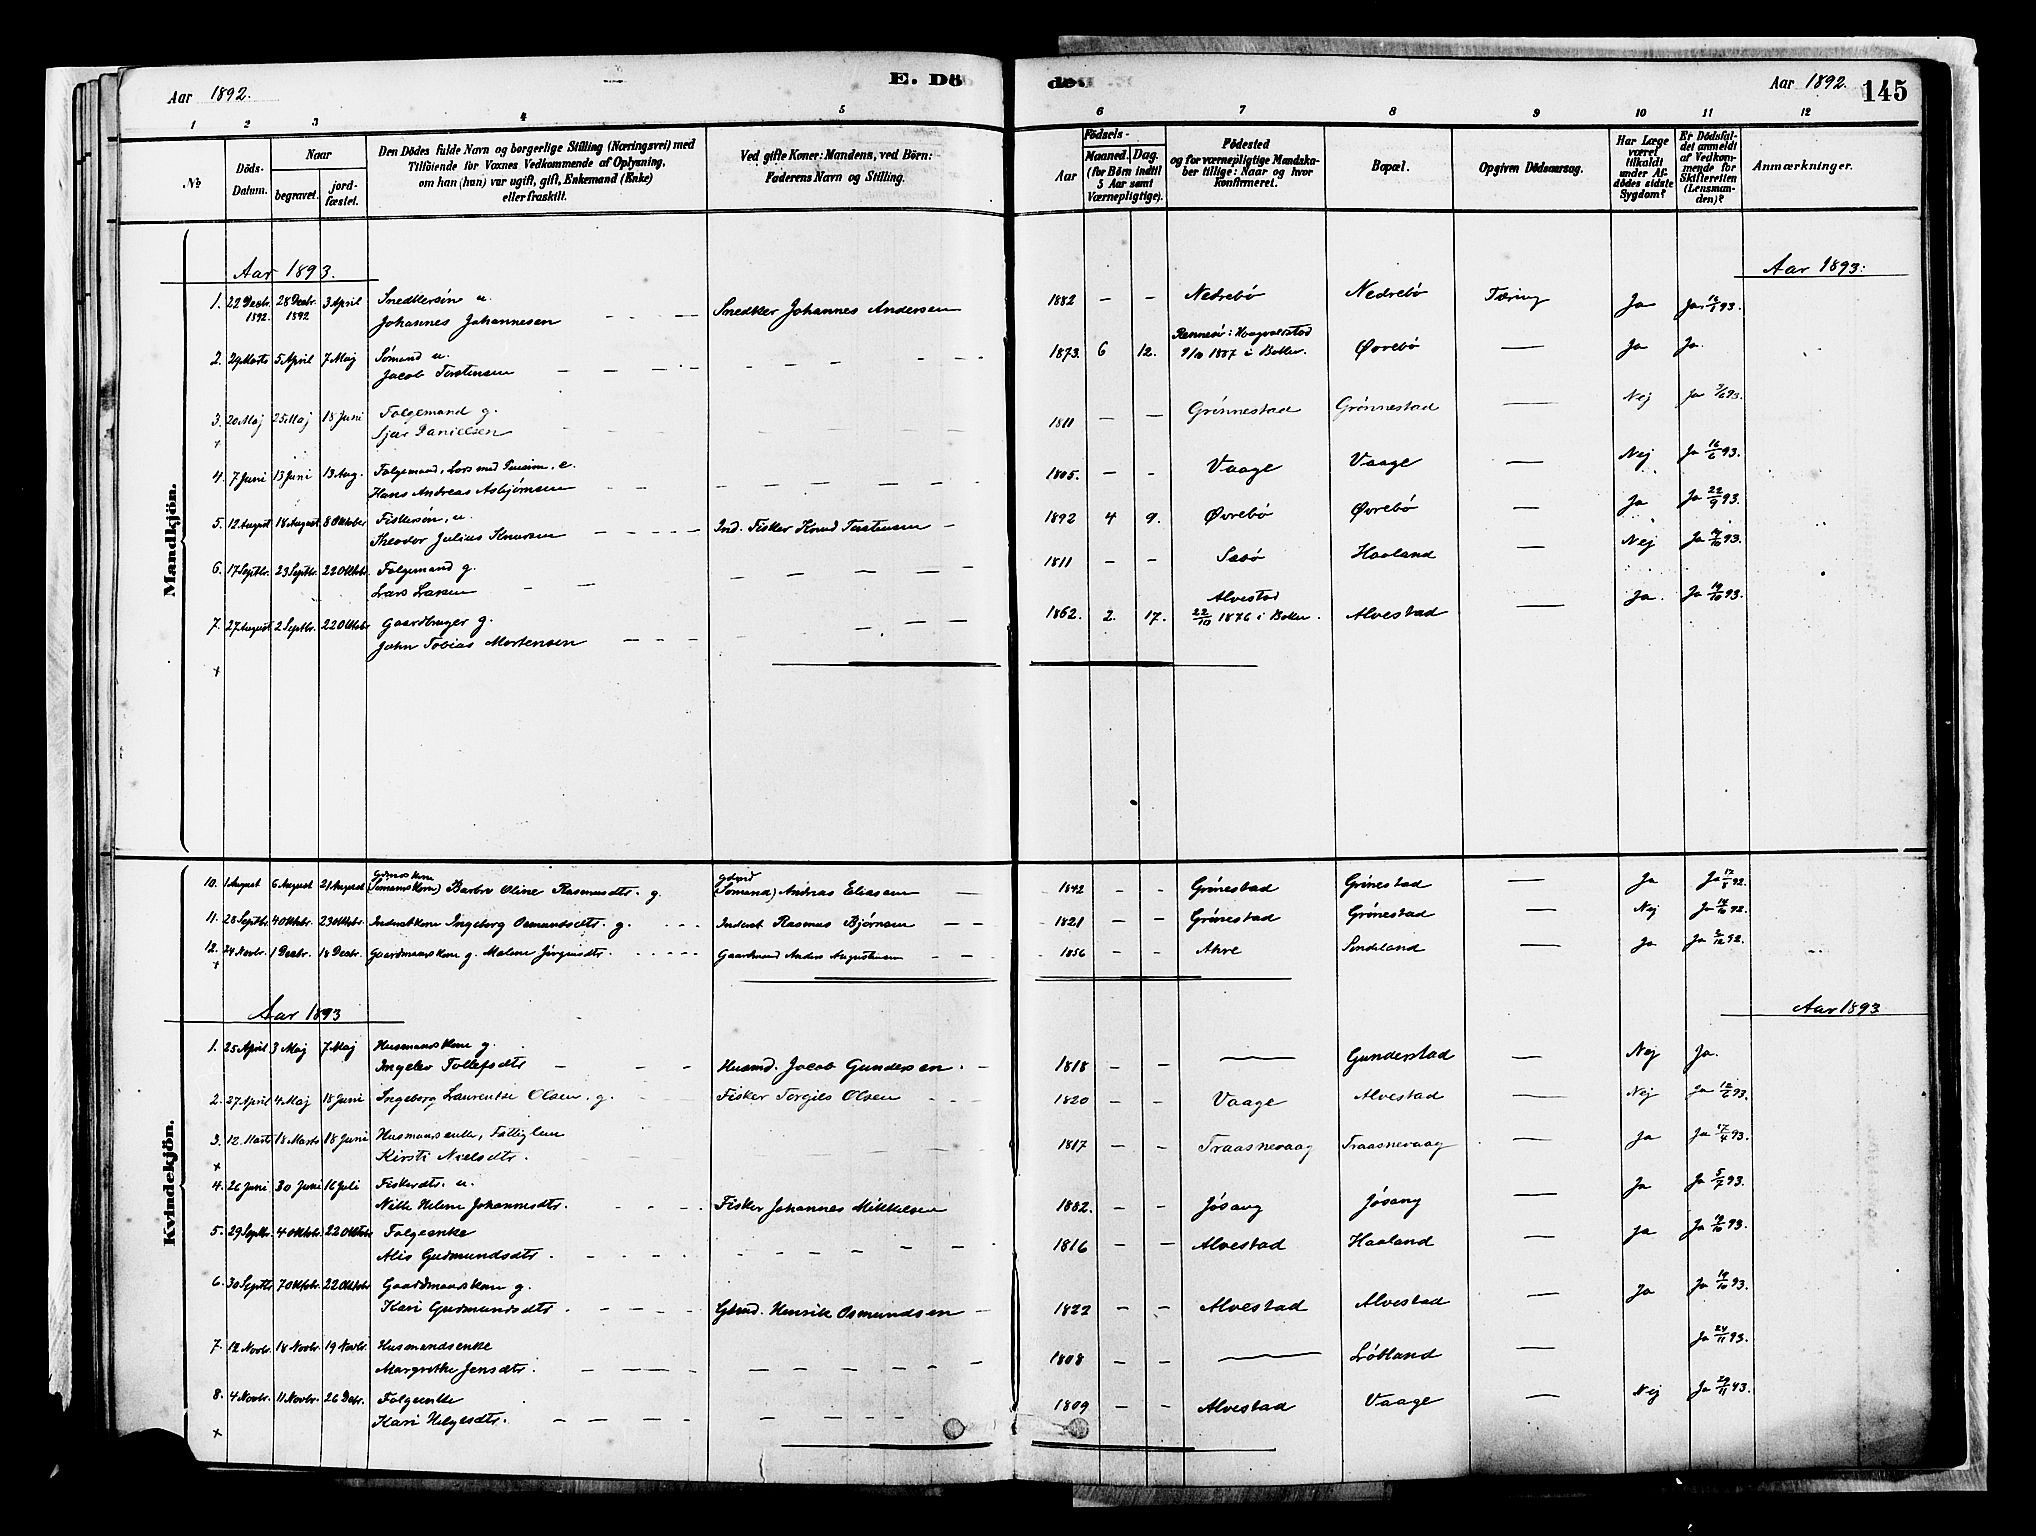 Aar 1892.
E. Dö
de.
Aar 1892.
145
1 2 3 4 5 6 7 8 9 10 11 12
No
Döds-Datum.
Naar
begravet.
jord-fæstet.
Den Dödes fulde Navn og borgerlige Stilling (Næringsvei) med
Tilföiende for Voxnes Vedkommende af Oplysning,
om han (hun) var ugift, gift, Enkemand (Enke)
eller fraskilt.
Ved gifte Koner: Mandens, ved Börn:
Faderens Navn og Stilling.
Födsels-
Aar
Maaned. Dag.
(for Börn indtil
5 Aar samt
Værnepligtige).
Födested
og for værnepligtige Mandska-
ber tillige: Naar og hvor
konfirmeret.
Bopæl.
Opgiven Dödsaarsag.
Har Læge
været
tilkaldt
under Af-
dödes sidste
Sygdom?
Er Dödsfal-
det anmeldt
af Vedkom-
mende for
Skifteretten
(Lensman-
den)?
Anmærkninger.
Mandkjön.
Aar 1893.
Aar 1893.
1. 22 Decbr. 28 Decbr. 3 April Snedkersön u. 1882 — — Nedrebö Nedrebö Tæring Ja Ja 93.
1892. 1892 Johannes Johannesen Snedker Johannes Andersen
2. 29 Marts 5 April 7 Maj Sömand u. 1873. 6 12. Øvrebö — Ja Ja.
Jacob Terstensen 9/10 1887 i Bokn.
3. 20 Maj 25 Maj 18 Juni Folgemand g. 1811 — — Grönnestad Grönnestad — Nej Ja 93.
+ Danielsen
4. 7 Juni 13 Juni 13 Aug. Folgemand, e. 1805. — — Vaage Vaage — Nej Ja 16/6 93.
Hans Andreas Asbjörnsen
5. 12 August 18 August 8 Oktober Fiskersön, u. 1892 4 9. Øvrebö Øvrebö — Ja Ja 22/9 93.
Theodor Julius Knudsen Ind. Fisker Knud Terstensen
6. 17 Septbr. 23 Septbr. 22 Oktbr. Folgemand g. 1811 — — Sæbö Haaland — Nej Ja 19/10 93.
Lars Larsen
7. 27 August 2 Septbr. 22 Oktbr. Gaardbruger g. 1862. 2. 17. Alvestad Alvestad — Ja. Ja 19/10 93.
John Tobias Mortensen 22/10 1876 i Bokn.
+
Kvindekjön.
10. 1 August 6 August 21 August (Sömandskone) Barbro Oline Rasmusdtr. g. (Sömand) Andreas Eliassen 1842 — — Grönestad Grönestad — Ja Ja 17/8 92.
11. 28 Septbr. 4 Oktbr. 23 Oktbr. Inderstkone Ingeborg Osmundsdtr. g. Inderst Rasmus Björnsen 1821 — — Grönestad Grönestad — Nej Ja 14/10 92.
12. 24 Novbr. 1 Decbr. 18 Decbr. Gaardmandskone g. Malene Jörgensdtr. Gaardmand Anders Augustinsen 1856 — — Ahre — Ja Ja 2/12 92.
+
Aar 1893
Aar 1893
1. 25 April 3 Maj 7 Maj Husmandskone g. Gunderstad — Nej Ja.
Ingelev Tollefsdtr Husmd. Jacob Gundersen. 1818 — —
2. 27 April 4 Maj 18 Juni Ingeborg Laurentse Olsen. g. Fisker Torgils Olsen 1820 — — Vaage Alvestad — Nej Ja 12/6 93.
3. 12 Marts 18 Marts 18 Juni Husmandsenke, Fattiglem 1817 — — Traasnevaag Traasnevaag — Ja Ja 17/4 93.
+ Kirsti Nielsdtr.
4. 26 Juni 30 Juni 16 Juli Fiskerdtr. u. Ja Ja 5/7 93.
Nille Helene Johannesdtr. Fisker Johannes Mikkelsen 1882. — — Jösang Jösang —
5. 29 Septbr. 4 Oktbr. 22 Oktbr Folgeenke Ja Ja 19/10 93.
Alis Gudmundsdtr. 1816 — — Alvestad Haaland —
6. 30 Septbr 7 Oktbr. 22 Oktbr Gaardmandskone g. Ja Ja 19/10 93.
Kari Gudmundsdtr. Gbmd. Henrik Osmundsen 1822 — — Alvestad Alvestad —
7. 12 Novbr. 18 Novbr. 19 Novbr. Husmandsenke Ja 24/11 93.
Margrethe Jensdtr. 1808 — — — Lökland —
8. 4 Novbr. 11 Novbr. 26 Debr. Folgeenke Nej Ja 29/11 93.
Kari Helgesdtr. 1809 — — Alvestad Vaage —
+